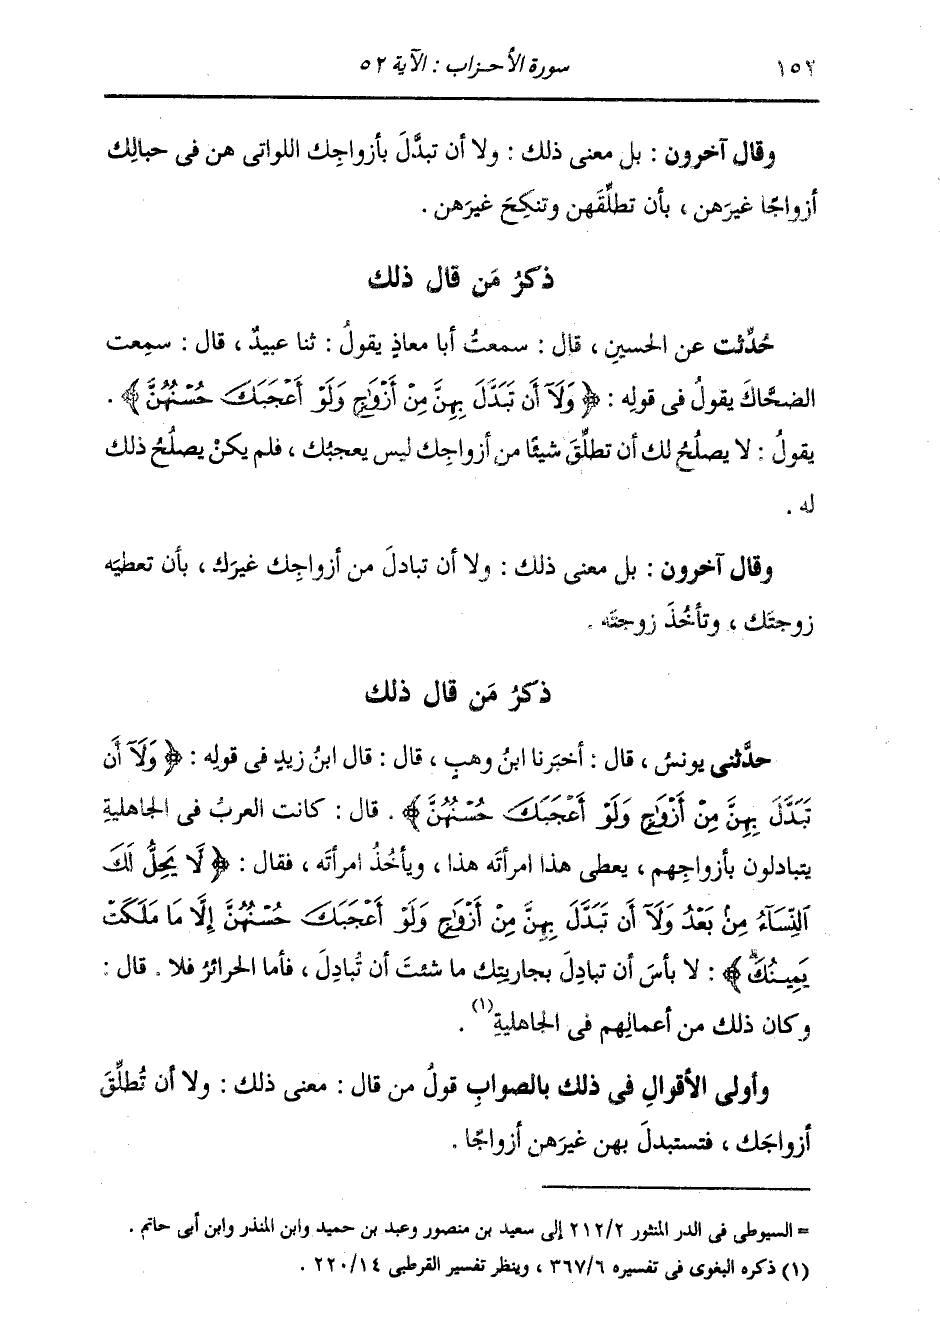 ١٥٢ سورة الأحزاب : الآية ٥٢
وقال آخرون : بل معنى ذلك : ولا أن تبدَّلَ بأزواجِك اللواتى هن فى حبالِك
أزواجًا غيرَهن ، بأن تطلِّقَهن وتنكِحَ غيرَهن .
ذكرُ مَن قال ذلك
حُدِّثت عن الحسينِ ، قال : سمعتُ أبا معاذٍ يقولُ : ثنا عبيدٌ ، قال : سمِعت
الضحَّاكَ يقولُ فى قولِه : ﴿ وَلَآ أَن تَبَدَّلَ بِهِنَّ مِنْ أَزْوَٰجٍ وَلَوْ أَعْجَبَكَ حُسْنُهُنَّ ﴾ .
يقولُ : لا يصلُحُ لك أن تطلِّقَ شيئًا من أزواجِك ليس يعجبُك ، فلم يكنْ يصلُحُ ذلك
له .
وقال آخرون : بل معنى ذلك : ولا أن تبادلَ من أزواجِك غيرَك ، بأن تعطيَه
زوجتَك ، وتأخُذَ زوجتَه .
ذكرُ مَن قال ذلك
حدَّثنى يونسُ ، قال : أخبَرنا ابنُ وهبٍ ، قال : قال ابنُ زيدٍ فى قولِه : ﴿ وَلَآ أَن
تَبَدَّلَ بِهِنَّ مِنْ أَزْوَٰجٍ وَلَوْ أَعْجَبَكَ حُسْنُهُنَّ ﴾ . قال : كانت العربُ فى الجاهليةِ
يتبادلون بأزواجِهم ، يعطى هذا امرأتَه هذا ، ويأخُذُ امرأتَه ، فقال : ﴿ لَّا يَحِلُّ لَكَ
ٱلنِّسَآءُ مِنۢ بَعْدُ وَلَآ أَن تَبَدَّلَ بِهِنَّ مِنْ أَزْوَٰجٍ وَلَوْ أَعْجَبَكَ حُسْنُهُنَّ إِلَّا مَا مَلَكَتْ
يَمِينُكَۗ ﴾ : لا بأسَ أن تبادلَ بجاريتِك ما شئتَ أن تُبادِلَ ، فأما الحرائرُ فلا . قال :
وكان ذلك من أعمالِهم فى الجاهليةِ(١) .
وأولى الأقوالِ فى ذلك بالصوابِ قولُ من قال : معنى ذلك : ولا أن تُطلِّقَ
أزواجَك ، فتستبدلَ بهن غيرَهن أزواجًا .
= السيوطى فى الدر المنثور ٢١٢/٢ إلى سعيد بن منصور وعبد بن حميد وابن المنذر وابن أبى حاتم .
(١) ذكره البغوى فى تفسيره ٣٦٧/٦ ، وينظر تفسير القرطبى ٢٢٠/١٤ .